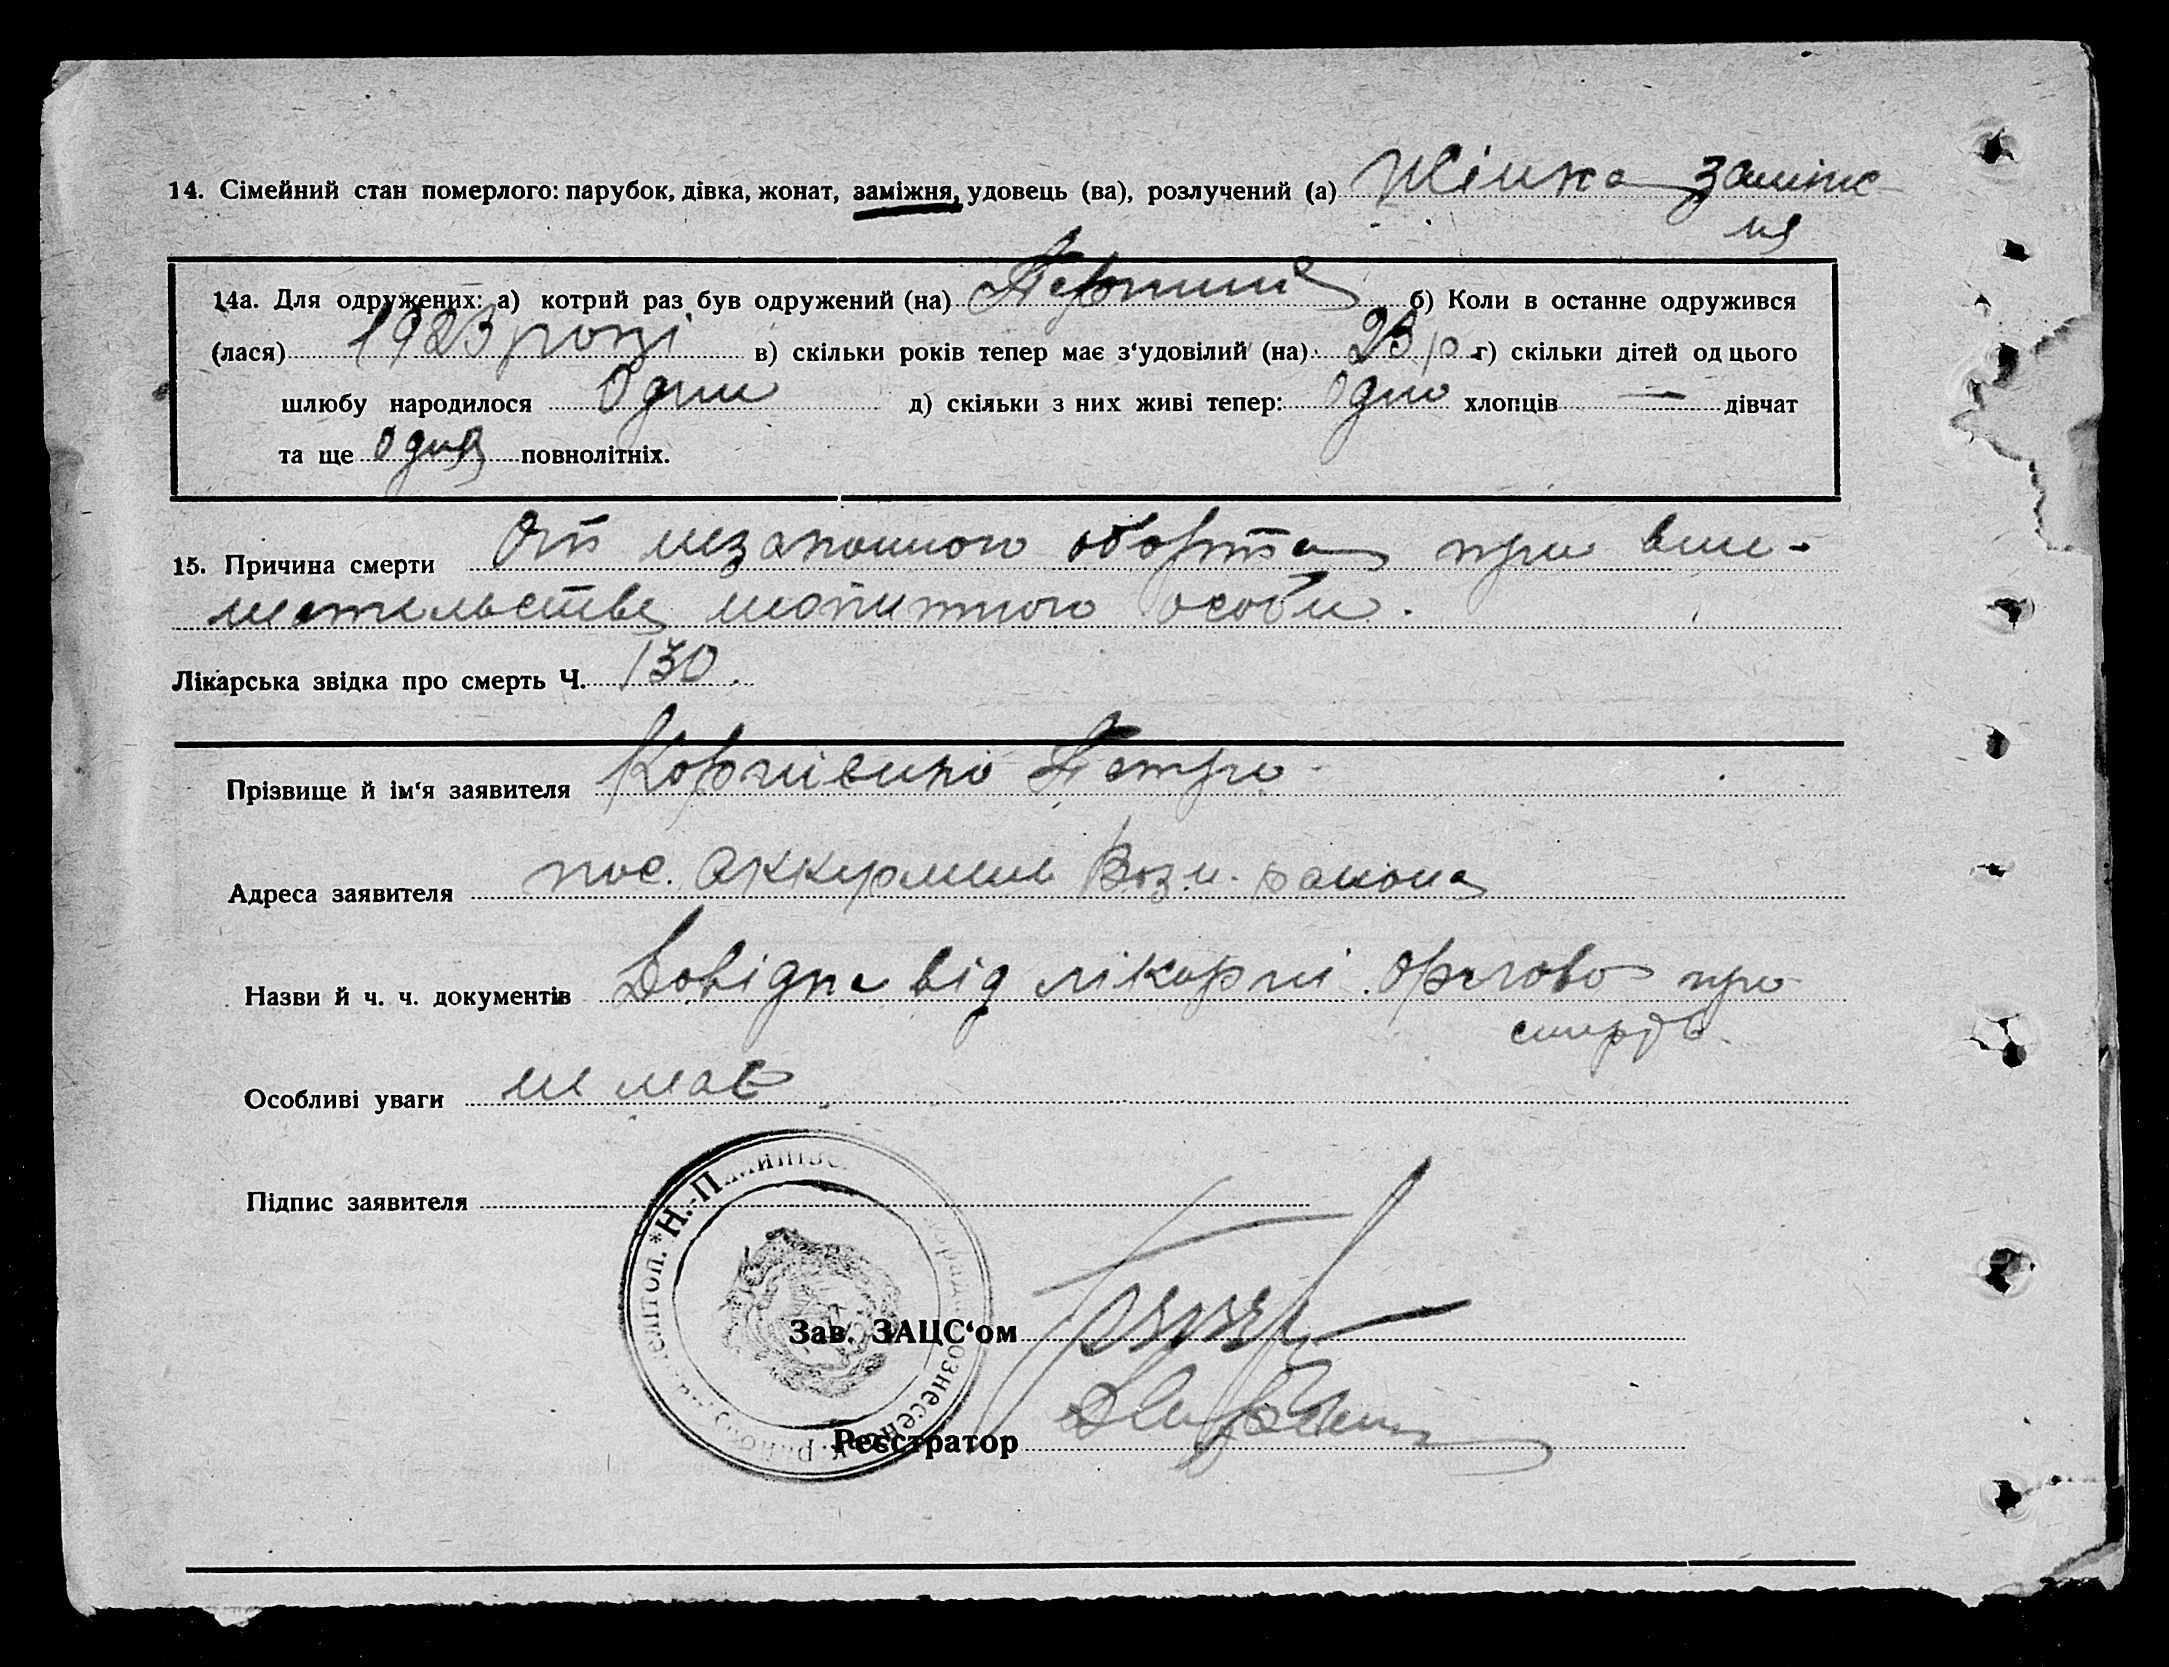 14. Сімейний стан померлого: парубок, дівка, жонат, заміжня, удовець (ва), розлучений (а) Жінка заміж
ня
14а. Для одружених: а) котрий раз був одружений (на) Первший б) Коли в останне одружився
(лася) 1923 році в) скільки років тепер має з‘удовілий (на) 23 р г) скільки дітей од цього
шлюбу народилося Один д) скільки з них живі тепер: Одно хлопців — дівчат
та ще один повнолітніх.
15. Причина смерти От незаконного оборта при вме-
шательстве
Лікарська звідка про смерть Ч. 130.
Прізвище й ім‘я заявителя Петро
Адреса заявителя пос. Аккурмень Возн. района
Назви й ч. ч. документів Довідка від лікарні Орлово про
смерть.
Особливі уваги не має
Підпис заявителя
Н.-П
Зав. ЗАЦС‘ом
Реєстратор